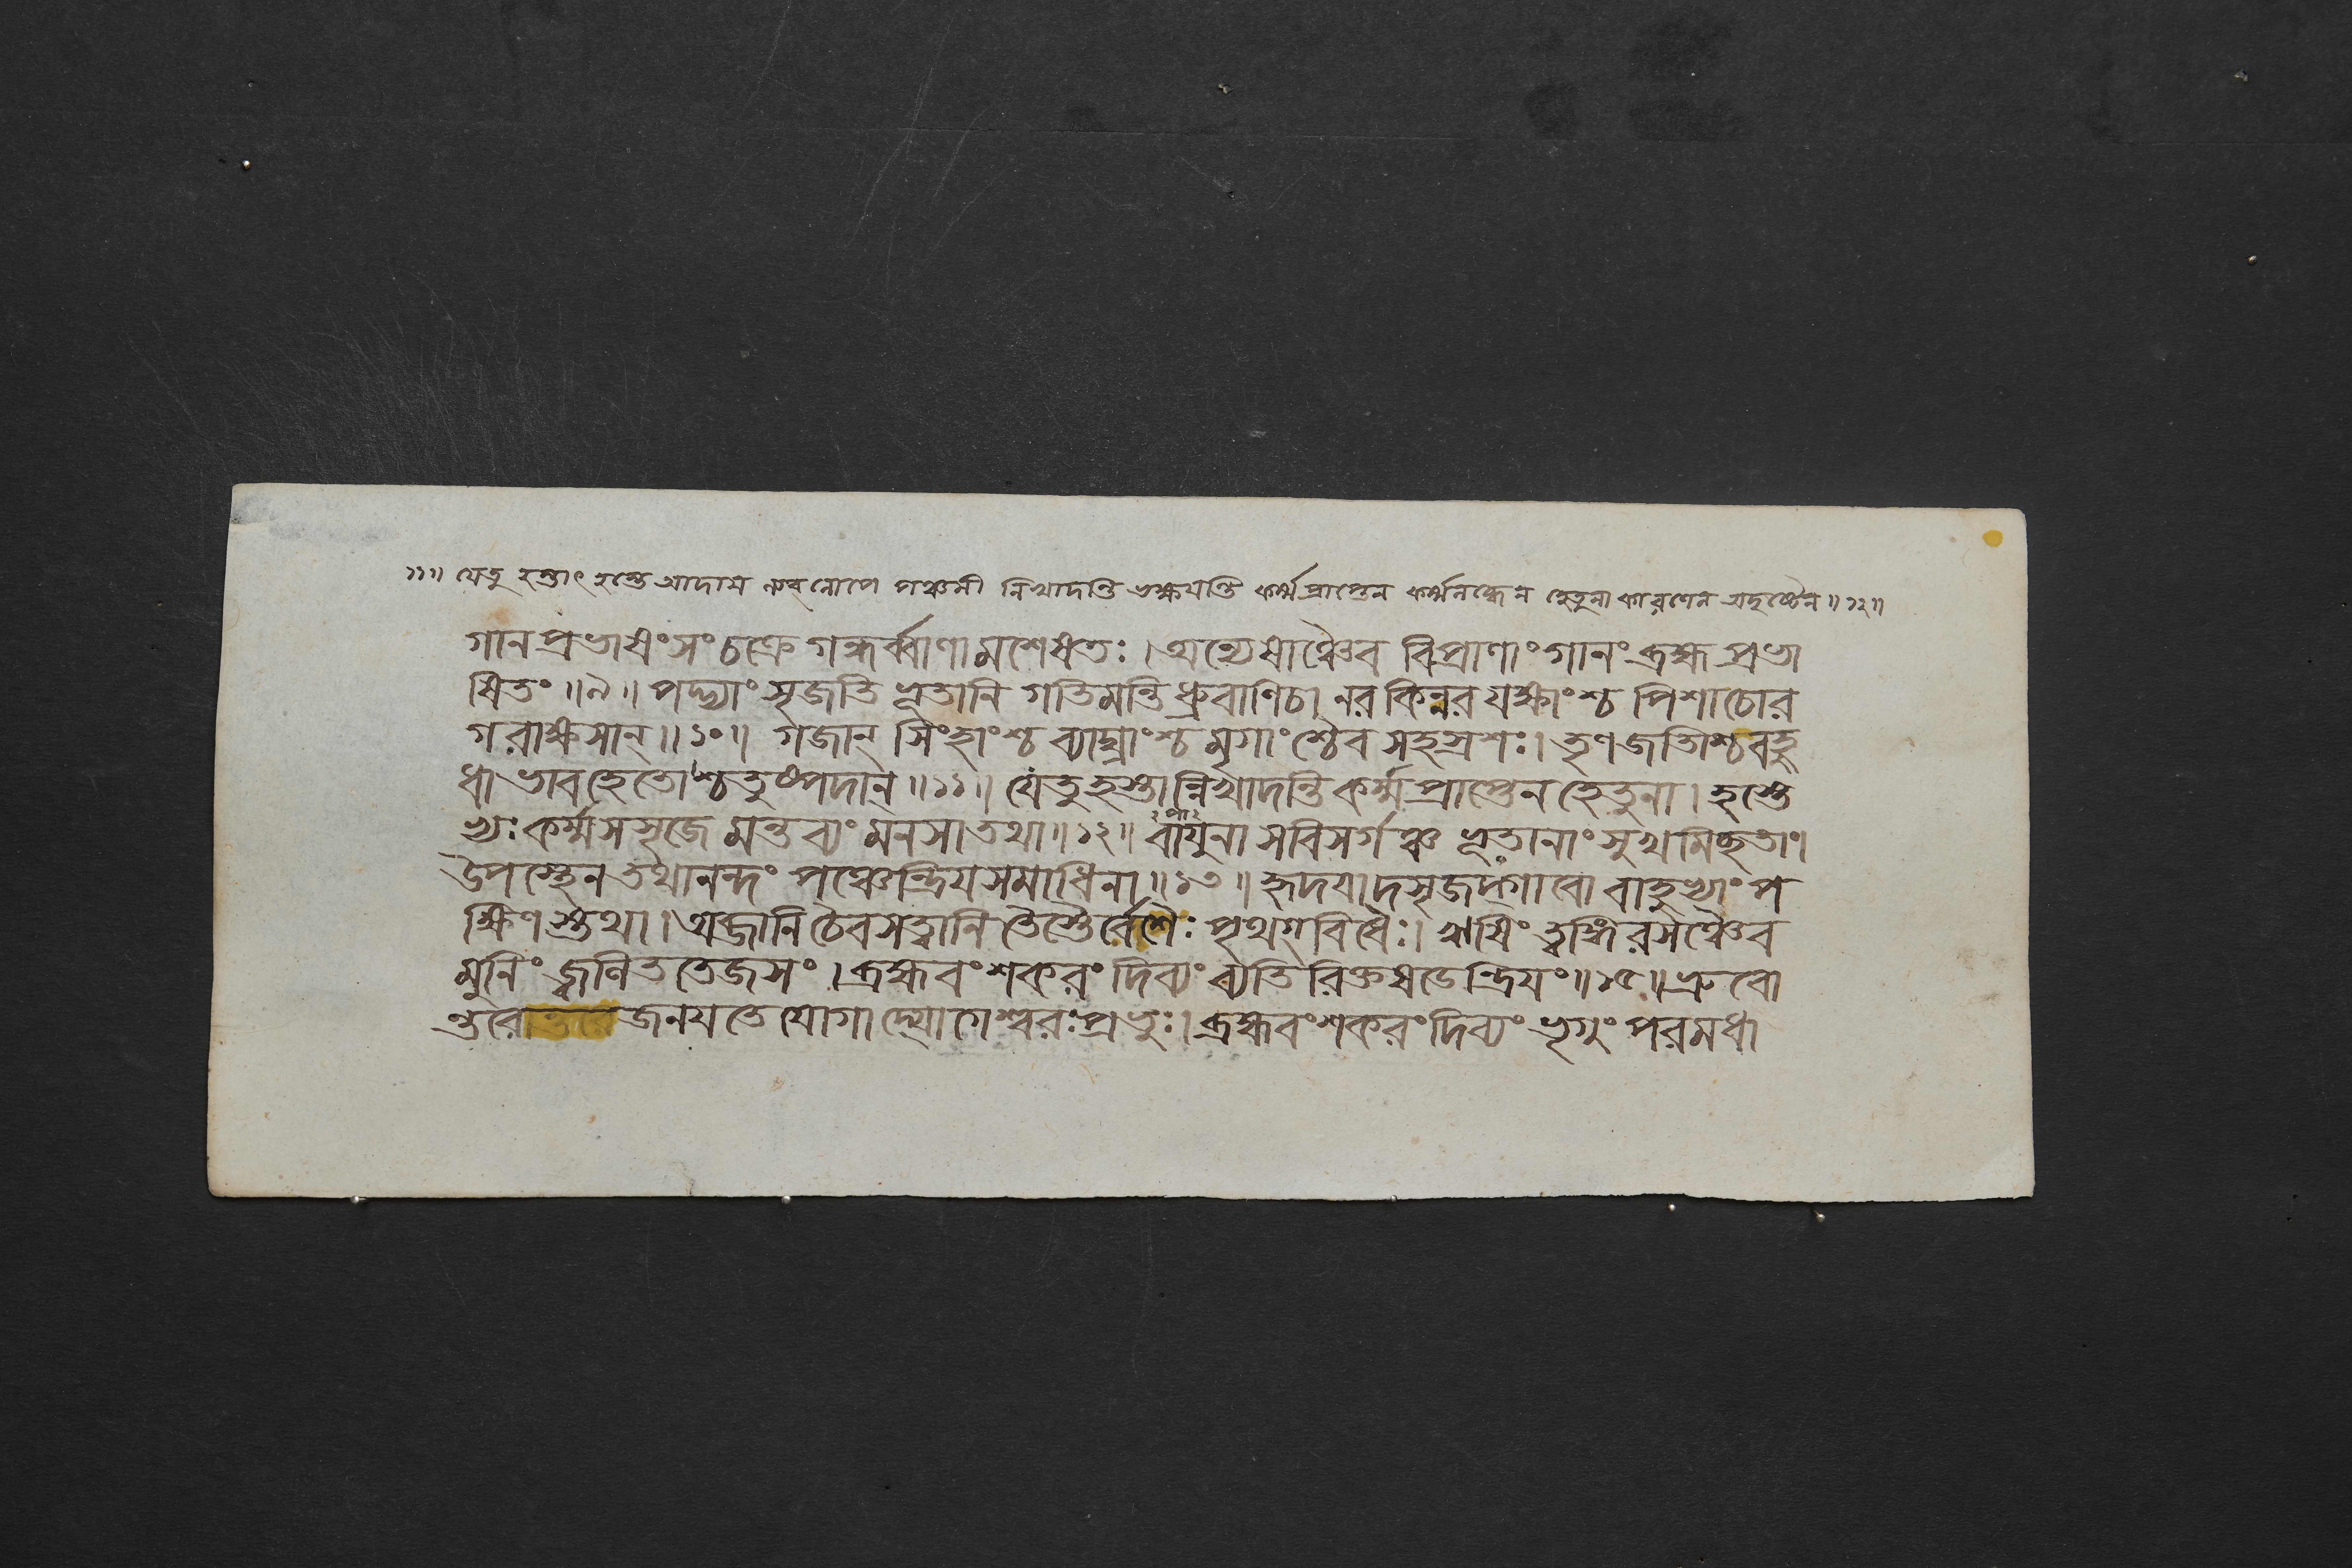 ১১॥ যেতু হস্তাৎ হস্তে আদায় ল্যব্ লোপে পঞ্চমী নিখাদন্তি ভক্ষয়ন্তি কর্ম্মপ্রাপ্তেন কর্ম্মলব্ধেন হেতুনা কারণেন অদৃষ্টেন॥১২॥
গান প্রভাষিং সং চক্রে গন্ধর্ব্বাণামশেষতঃ। অন্যেষাঞ্চৈব বিপ্রাণাং গানং ব্রহ্ম প্রভা
ষিতং॥৯॥ পদ্ভ্যাং সৃজতি ভূতানি গতিমন্তি ধ্রুবাণিচ। নর কিন্নর যক্ষাংশ্চ পিশাচোর
গরাক্ষসান্॥১০॥ গজান্ সিংহাংশ্চ ব্যাঘ্রাংশ্চ মৃগাংশ্চৈব সহস্রশঃ। তৃণ জাতীশ্চ বহু
ধা ভাবহেতোশ্চতুষ্পদান্॥১১॥ যেতু হস্তান্নিখাদন্তি কর্ম্মপ্রাপ্তেন হেতুনা। হস্তে
ভ্যঃ কর্ম্ম সসৃজে মন্তব্যং মনসা তথা॥১২॥ বায়ুনা সবিসর্গঞ্চ ভূতানাং সুখমিচ্ছতা।
উপস্থেন তথানন্দং পঞ্চেন্দ্রিয়সমাধিনা॥১৩॥ হৃদয়াদসৃজদ্গাবো বাহুভ্যাং প
ক্ষিণস্তথা। অজানি চৈবসত্ত্বানি তৈস্তৈর্বেশৈঃ পৃথগ্বিধৈঃ। ঋষিং ত্বঙ্গিরসঞ্চৈব
মুনিং জ্বলিত তেজসং। ব্রহ্মবংশকরং দিব্যং ব্যতিরিক্তষডেন্দ্রিয়ং॥১৫॥ ভ্রুবো
ন্তরো জনয়তে যোগাদ্যোগেশ্বরঃ প্রভুঃ। ব্রহ্মবংশকরং দিব্যং ভৃগুং পরমধা